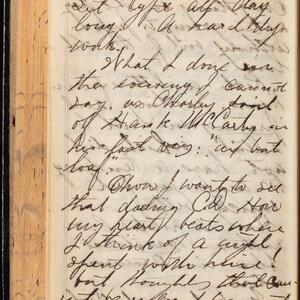 set type all day
long. A hard day's
work.
What I done in
the evening I cannot
say, as Charley said
of Hank McCarty in
his last days: "air but
loaf".
Ohon I want to see
that darling Cal. How
my heart beats when
I think of a night
spent with
but thoughts that